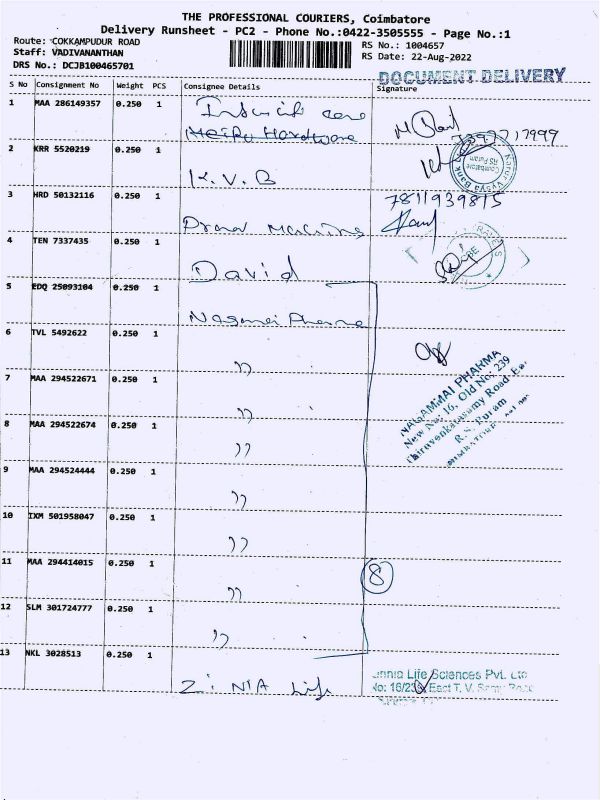 THE PROFESSIONAL COURIERS, Coimbatore
Delivery Runsheet - PC2 - Phone No.:0422-3505555 - Page No.:1
Route: COKKAMPUDUR ROAD
Staff: VADIVANANTHAN
DRS No.: DCJB100465701
RS No.: 1004657
RS Date: 22-Aug-2022
DOCUMENT DELIVERY
S No Consignment No Weight PCS Consignee Details Signature
1 MAA 286149357 0.250 1
Hardware
2 KRR 5520219 0.250 1
K.V.B
Karur Vysya Bank
Coimbatore
RS Puram
3 HRD 50132116 0.250 1
7811939815
4 TEN 7337435 0.250 1
David
5 EDQ 25093104 0.250 1
Pharma
6 TVL 5492622 0.250 1
"
NAGAMMAI PHARMA
New No: 16, Old No: 239
Thiruvenkatasamy Road
R.S. Puram
7 MAA 294522671 0.250 1
"
8 MAA 294522674 0.250 1
"
9 MAA 294524444 0.250 1
"
10 IXM 501958047 0.250 1
"
11 MAA 294414015 0.250 1
"
8
12 SLM 301724777 0.250 1
"
13 NKL 3028513 0.250 1
ZiNIA Life
Life Sciences Pvt. Ltd
East T. V. Samy Road